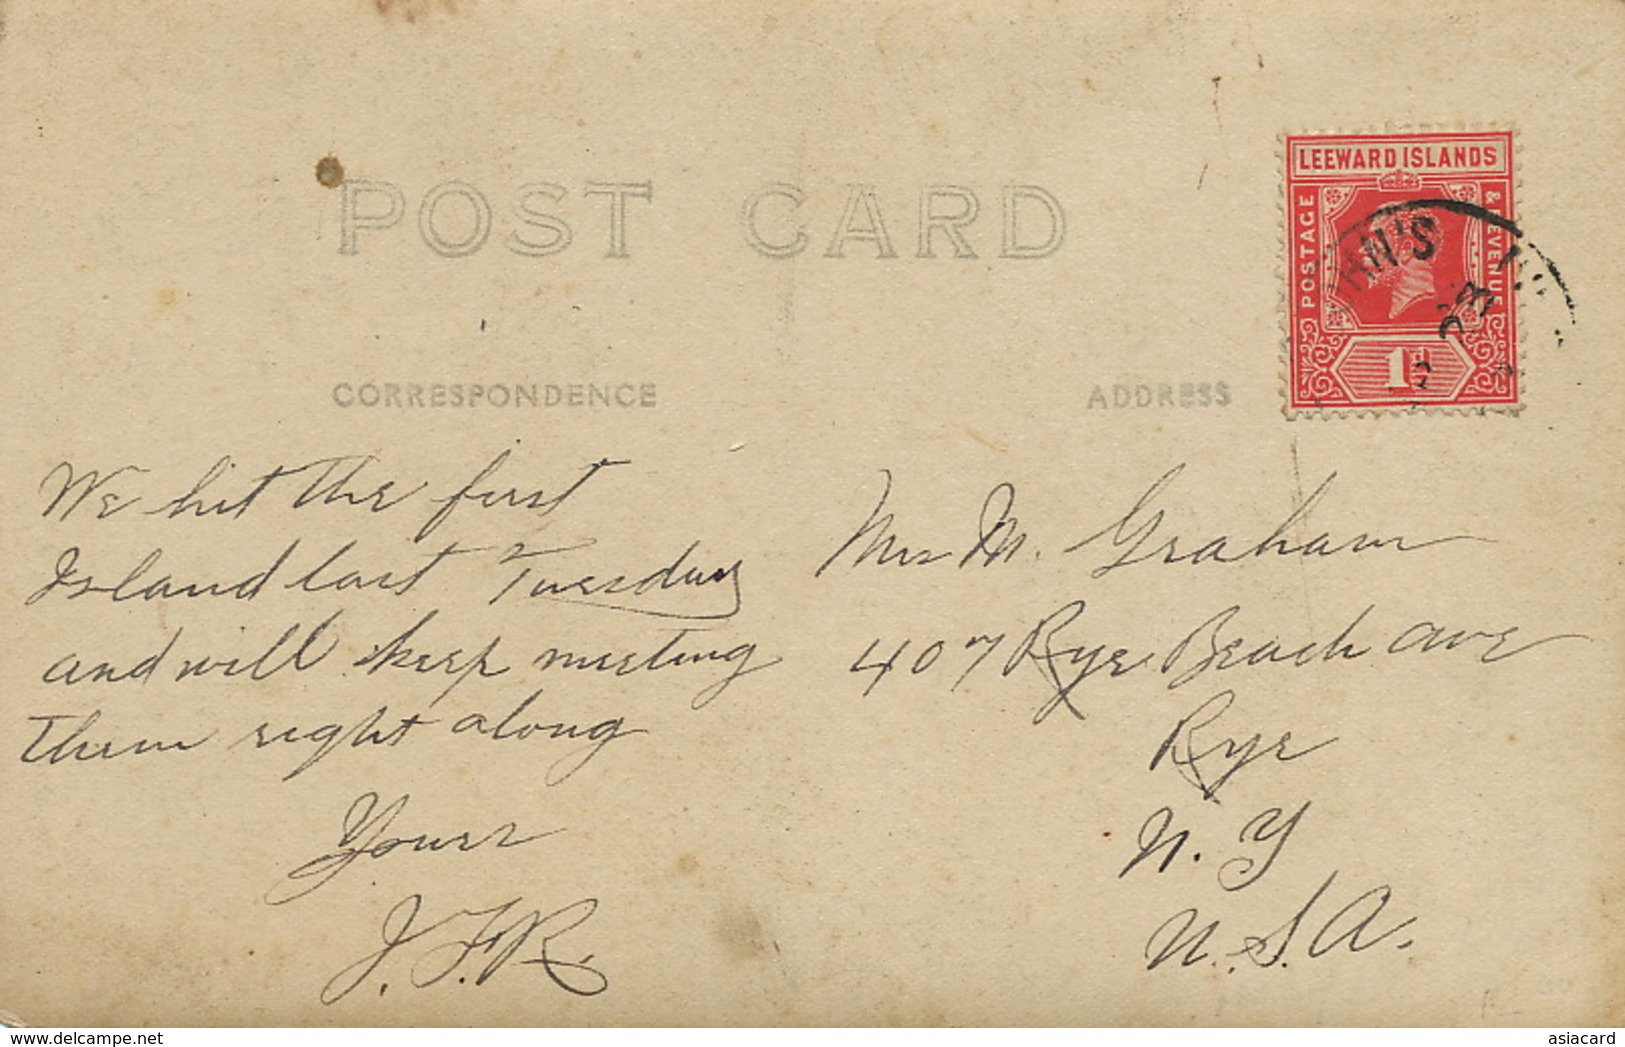 POST CARD
LEEWARD ISLANDS
POSTAGE
& REVENUE
1d
CORRESPONDENCE
ADDRESS
We hit the first
Island last Tuesday
and will keep meeting
them right along
Yours
J.F.R.
Mrs M. Graham
407 Rye Beach ave
Rye
N.Y
U.S.A.
delcampe.net
asiacard